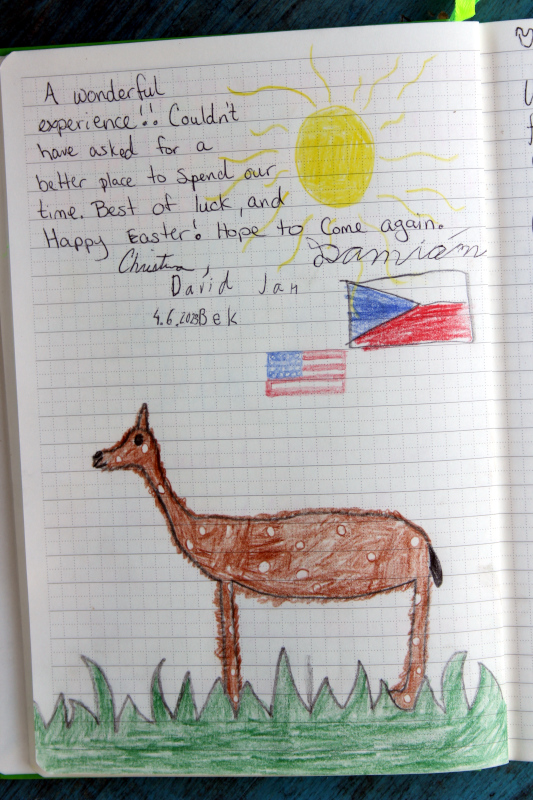 A wonderful
experience!! Couldn't
have asked for a
better place to spend our
time. Best of luck, and
Happy Easter! Hope to come again.
Christina, Damián
David Jan
4.6.2023 Bek